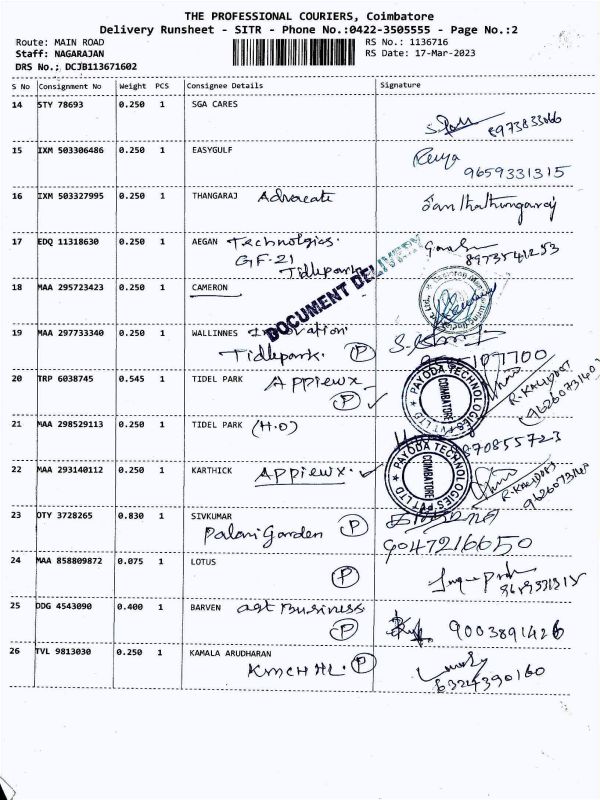 THE PROFESSIONAL COURIERS, Coimbatore
Delivery Runsheet - SITR - Phone No.:0422-3505555 - Page No.:2
Route: MAIN ROAD
RS No.: 1136716
Staff: NAGARAJAN
RS Date: 17-Mar-2023
DRS No.; DCJB113671602
S No Consignment No Weight PCS Consignee Details Signature
14 STY 78693 0.250 1 SGA CARES
8973833066
15 IXM 503306486 0.250 1 EASYGULF
Renya
9659331315
16 IXM 503327995 0.250 1 THANGARAJ Advocate
17 EDQ 11318630 0.250 1 AEGAN Technolgies.
GF-21
Tidlepark
8973541253
DOCUMENT DELIVERY
18 MAA 295723423 0.250 1 CAMERON
19 MAA 297733340 0.250 1 WALLINNES Innovation
Tidlepark. P
20 TRP 6038745 0.545 1 TIDEL PARK Appiewx
P ✓
PAYODA TECHNOLOGIES PVT LTD
COIMBATORE
R.KALIDOSS
9626073140
21 MAA 298529113 0.250 1 TIDEL PARK (H.O)
870855723
22 MAA 293140112 0.250 1 KARTHICK Appiewx. ✓
PAYODA TECHNOLOGIES PVT LTD
COIMBATORE
R.KALIDOSS
9626073140
23 OTY 3728265 0.830 1 SIVKUMAR
Palani Garden P
9047216650
24 MAA 858809872 0.075 1 LOTUS
P
25 DDG 4543090 0.400 1 BARVEN agt Business
P
9003891426
26 TVL 9813030 0.250 1 KAMALA ARUDHARAN
KMCH HL. P
6324390160